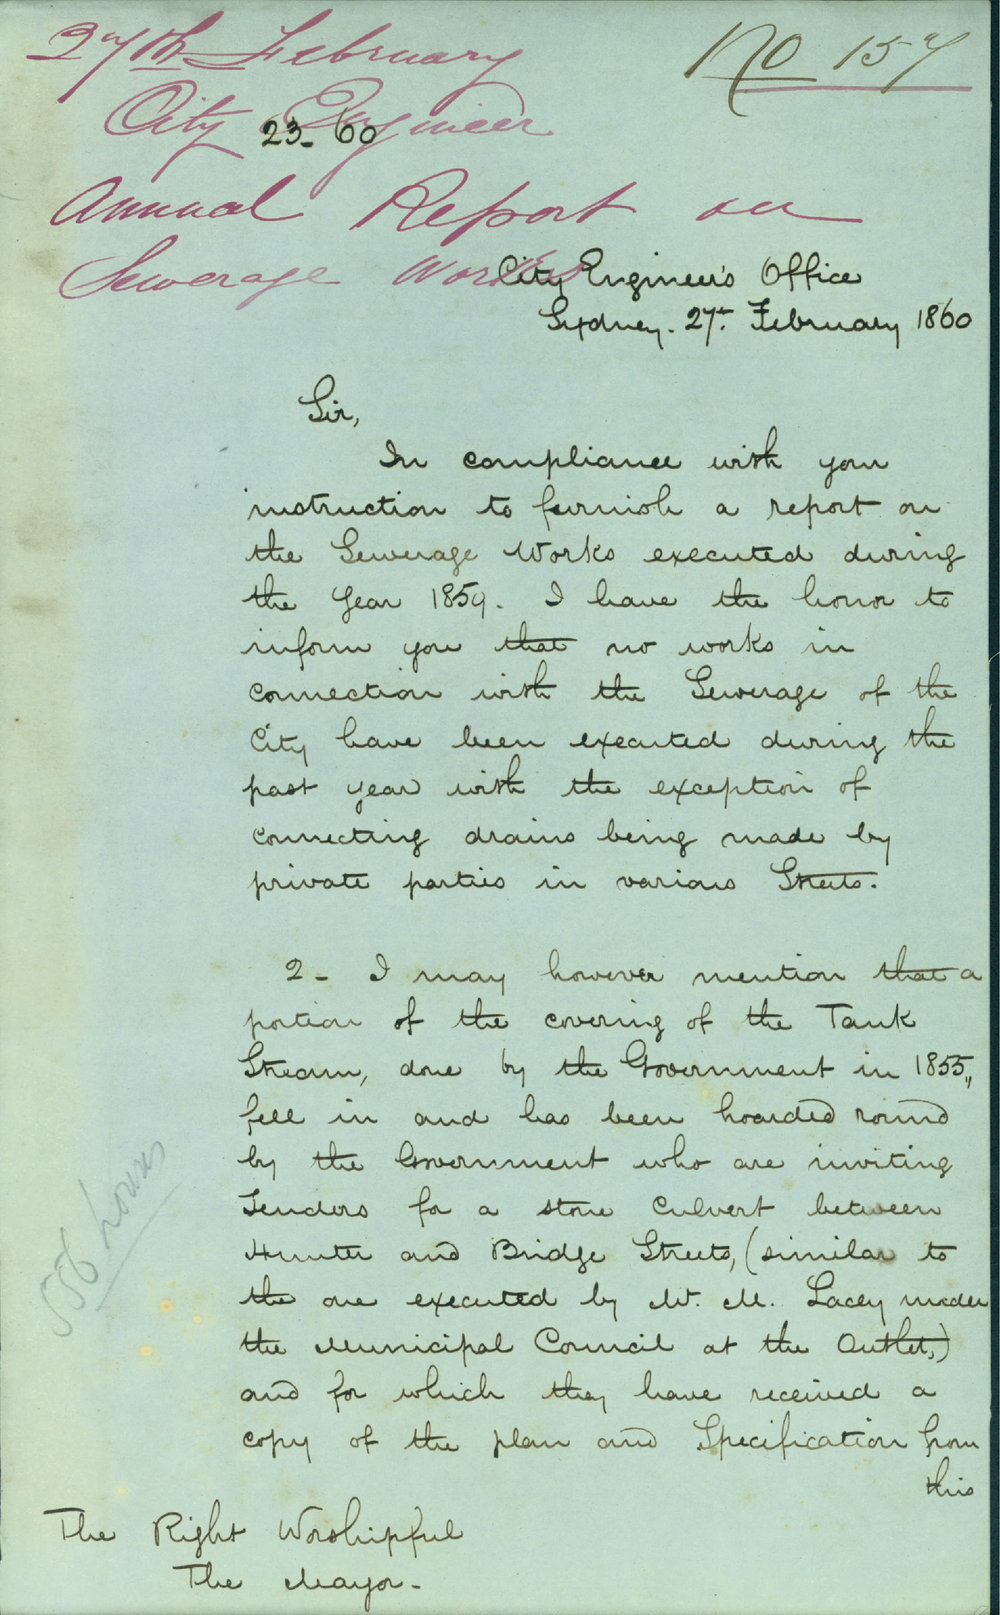 27th February
No 157
City Engineer
23-60
Annual Report on
Sewerage Works
City Engineer's Office
Sydney. 27th February 1860
Sir,
In compliance with your
instruction to furnish a report on
the Sewerage Works executed during
the Year 1859. I have the honor to
inform you that no works in
connection with the Sewerage of the
City have been executed during the
past year with the exception of
connecting drains being made by
private parties in various Streets.
2- I may however mention that a
portion of the covering of the Tank
Stream, done by the Government in 1855,,
fell in and has been hoarded round
by the Government who are inviting
Tenders for a stone Culvert between
Hunter and Bridge Streets, (similar to
the one executed by Mr. M. Lacey under
the Municipal Council at the Outlet,)
and for which they have received a
copy of the plan and Specification from
this
556 houses
The Right Worshipful
The Mayor-